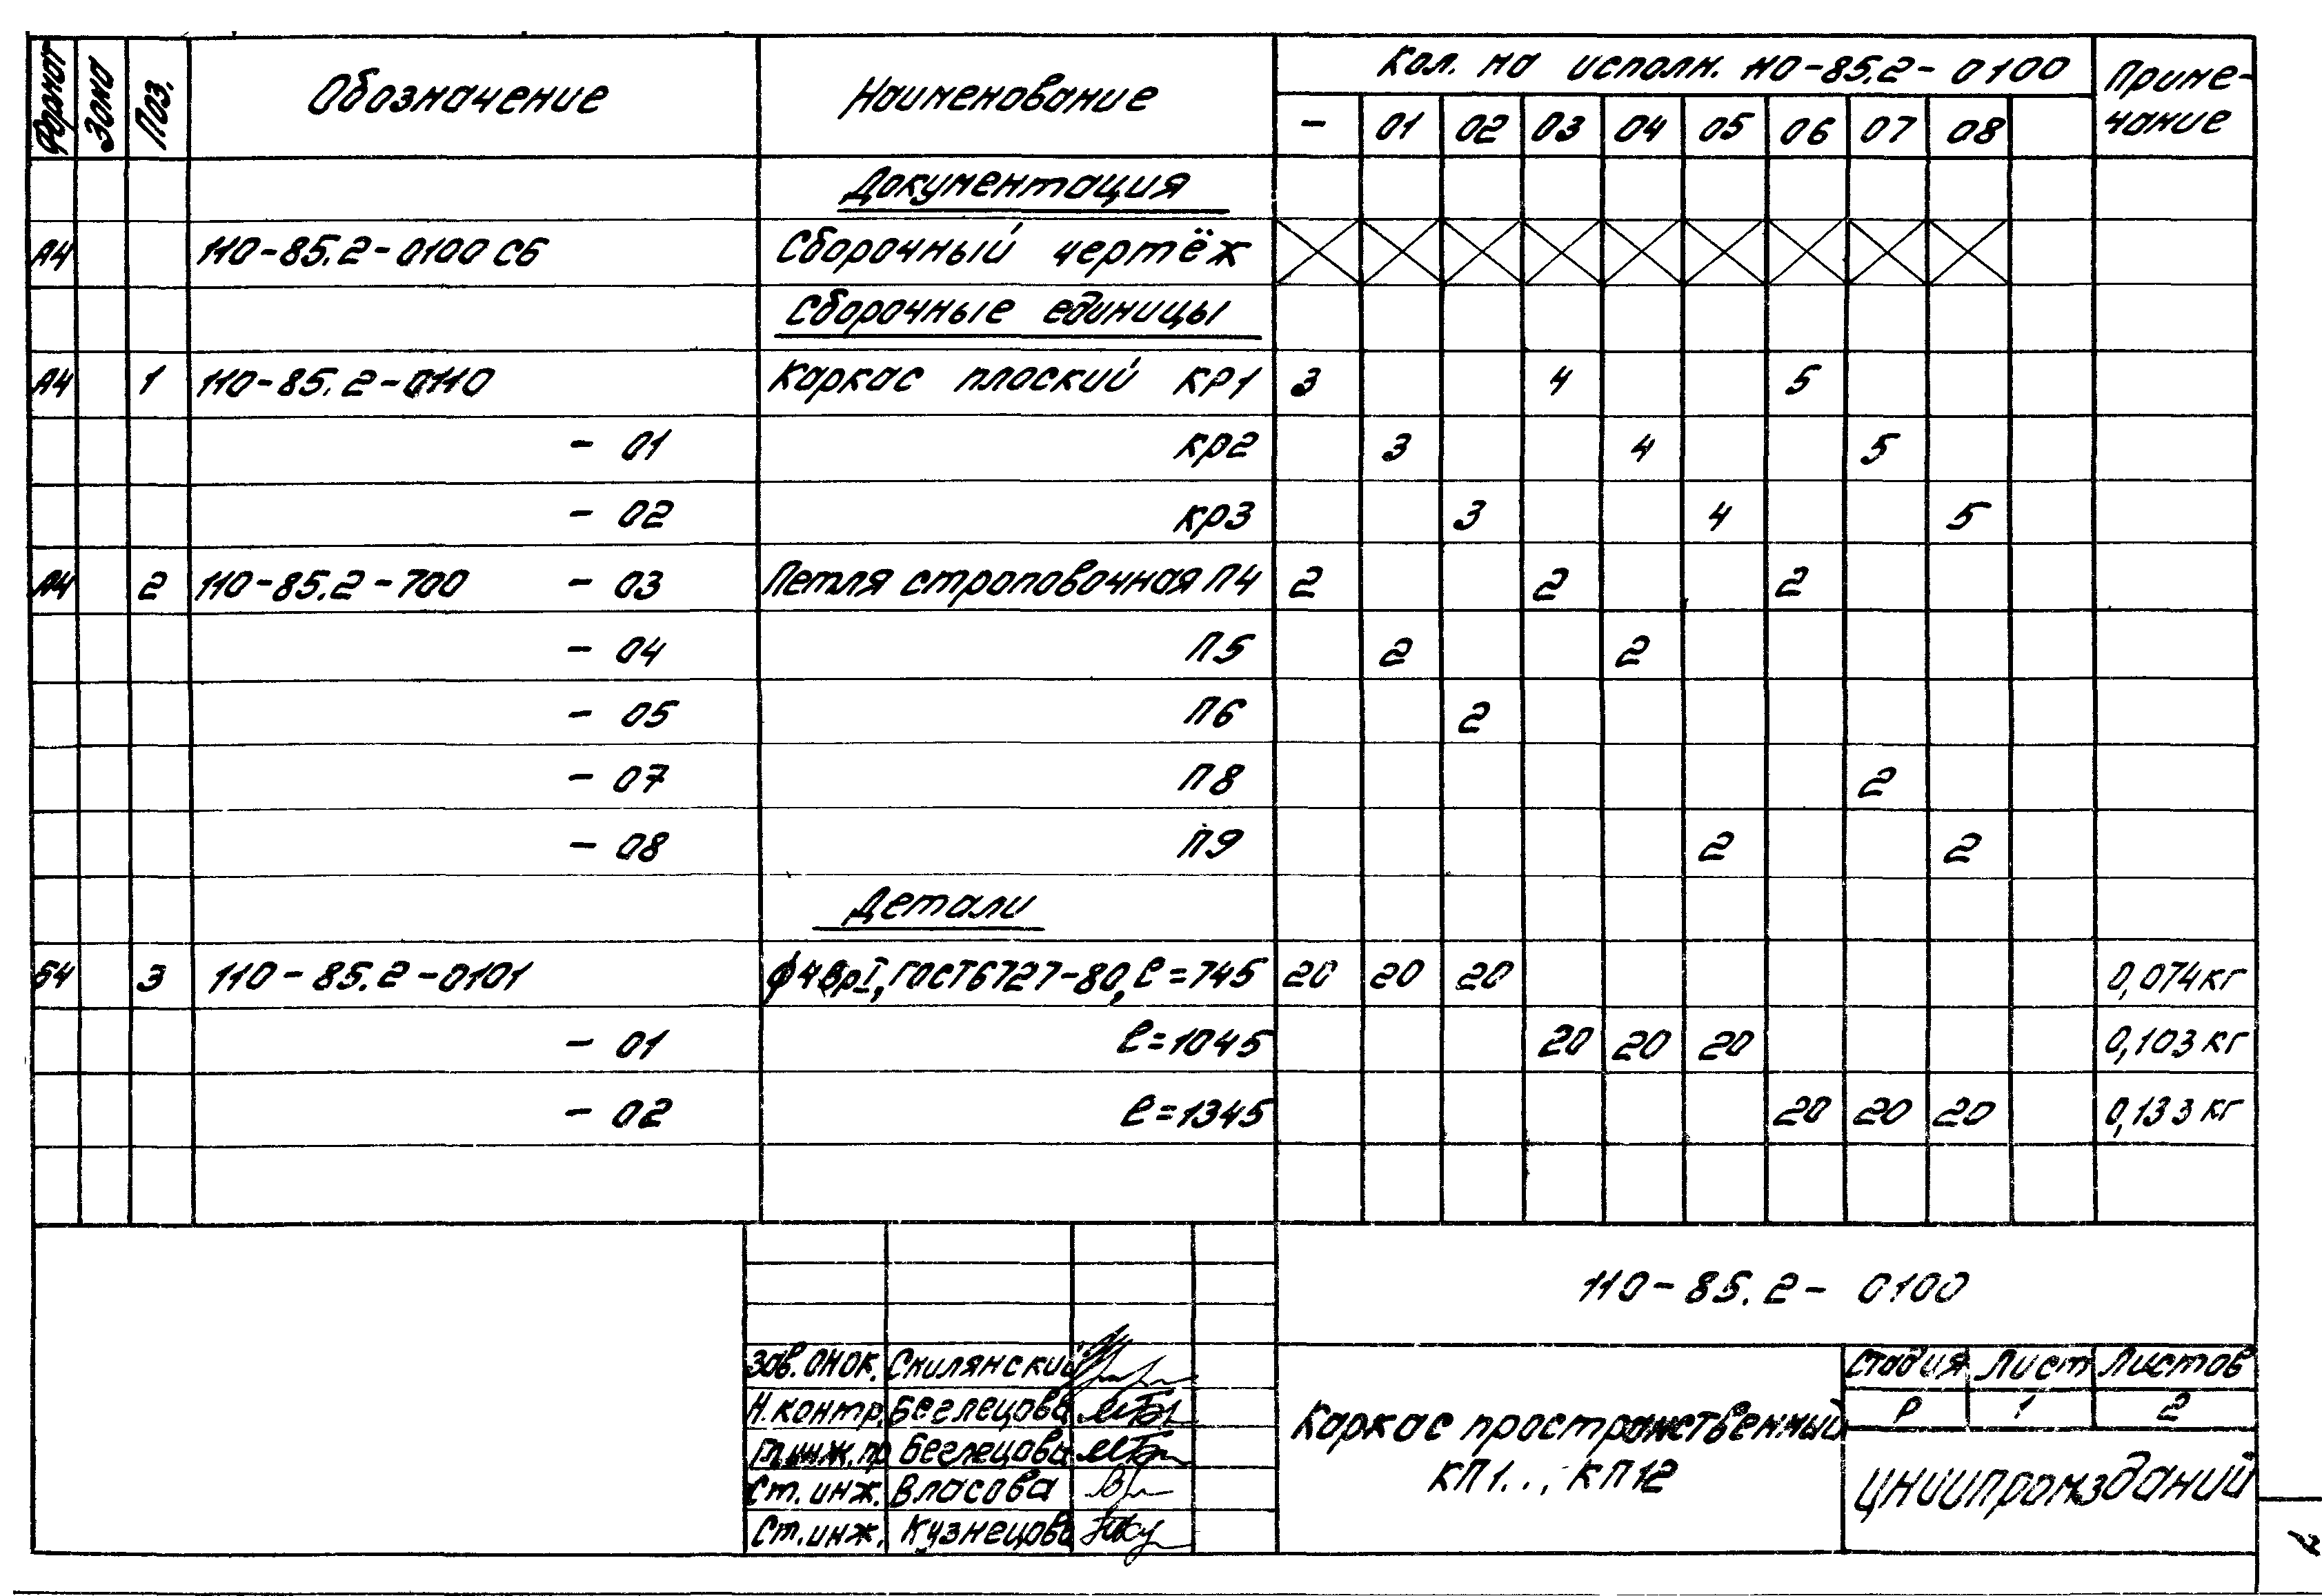 Формат Зона Поз. Обозначение Наименование Кол. на исполн. 110-85.2-0100 Приме-
чание
- 01 02 03 04 05 06 07 08
Документация
А4 110-85.2-0100 СБ Сборочный чертёж
Сборочные единицы
А4 1 110-85.2-0110 Каркас плоский КР1 3 4 5
- 01 КР2 3 4 5
- 02 КР3 3 4 5
А4 2 110-85.2-700 - 03 Петля строповочная П4 2 2 2
- 04 П5 2 2
- 05 П6 2
- 07 П8 2
- 08 П9 2 2
Детали
Б4 3 110-85.2-0101 ϕ4ВрI, ГОСТ6727-80, ℓ=745 20 20 20 0,074кг
- 01 ℓ=1045 20 20 20 0,103кг
- 02 ℓ=1345 20 20 20 0,133кг
110-85.2-0100
Зав. ОНОК. Смилянский
Н.контр. Беглецова
Гл.инж.пр Беглецова
Ст.инж. Власова
Ст.инж. Кузнецова
Каркас пространственный
КП1..., КП12
Стадия Лист Листов
Р 1 2
ЦНИИпромзданий
2